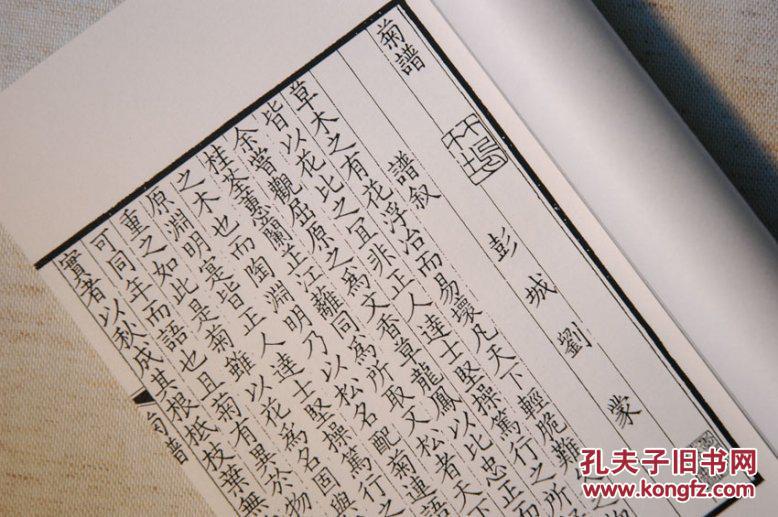 菊譜
彭城劉蒙
譜叙
草木之有花浮冶而易壞凡天下輕脆難
皆以花比之宜非正人達士堅操篤行之所
余嘗觀屈原之為文香草龍鳳以比忠正而
桂荃蕙蘭芷江離同為所取又松者天下
之木也而陶淵明乃以松名配菊連語
原淵明寔皆正人達士堅操篤行之
重之如此是菊雖以花為名固與
可同年而語也且菊有異於物
實者以秋成其根柢枝葉無
菊譜
孔夫子旧书网
www.kongfz.com